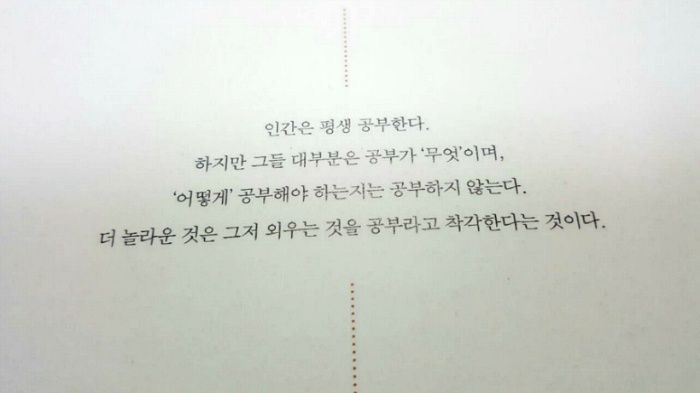 인간은 평생 공부한다.
하지만 그들 대부분은 공부가 ‘무엇’이며,
‘어떻게’ 공부해야 하는지는 공부하지 않는다.
더 놀라운 것은 그저 외우는 것을 공부라고 착각한다는 것이다.